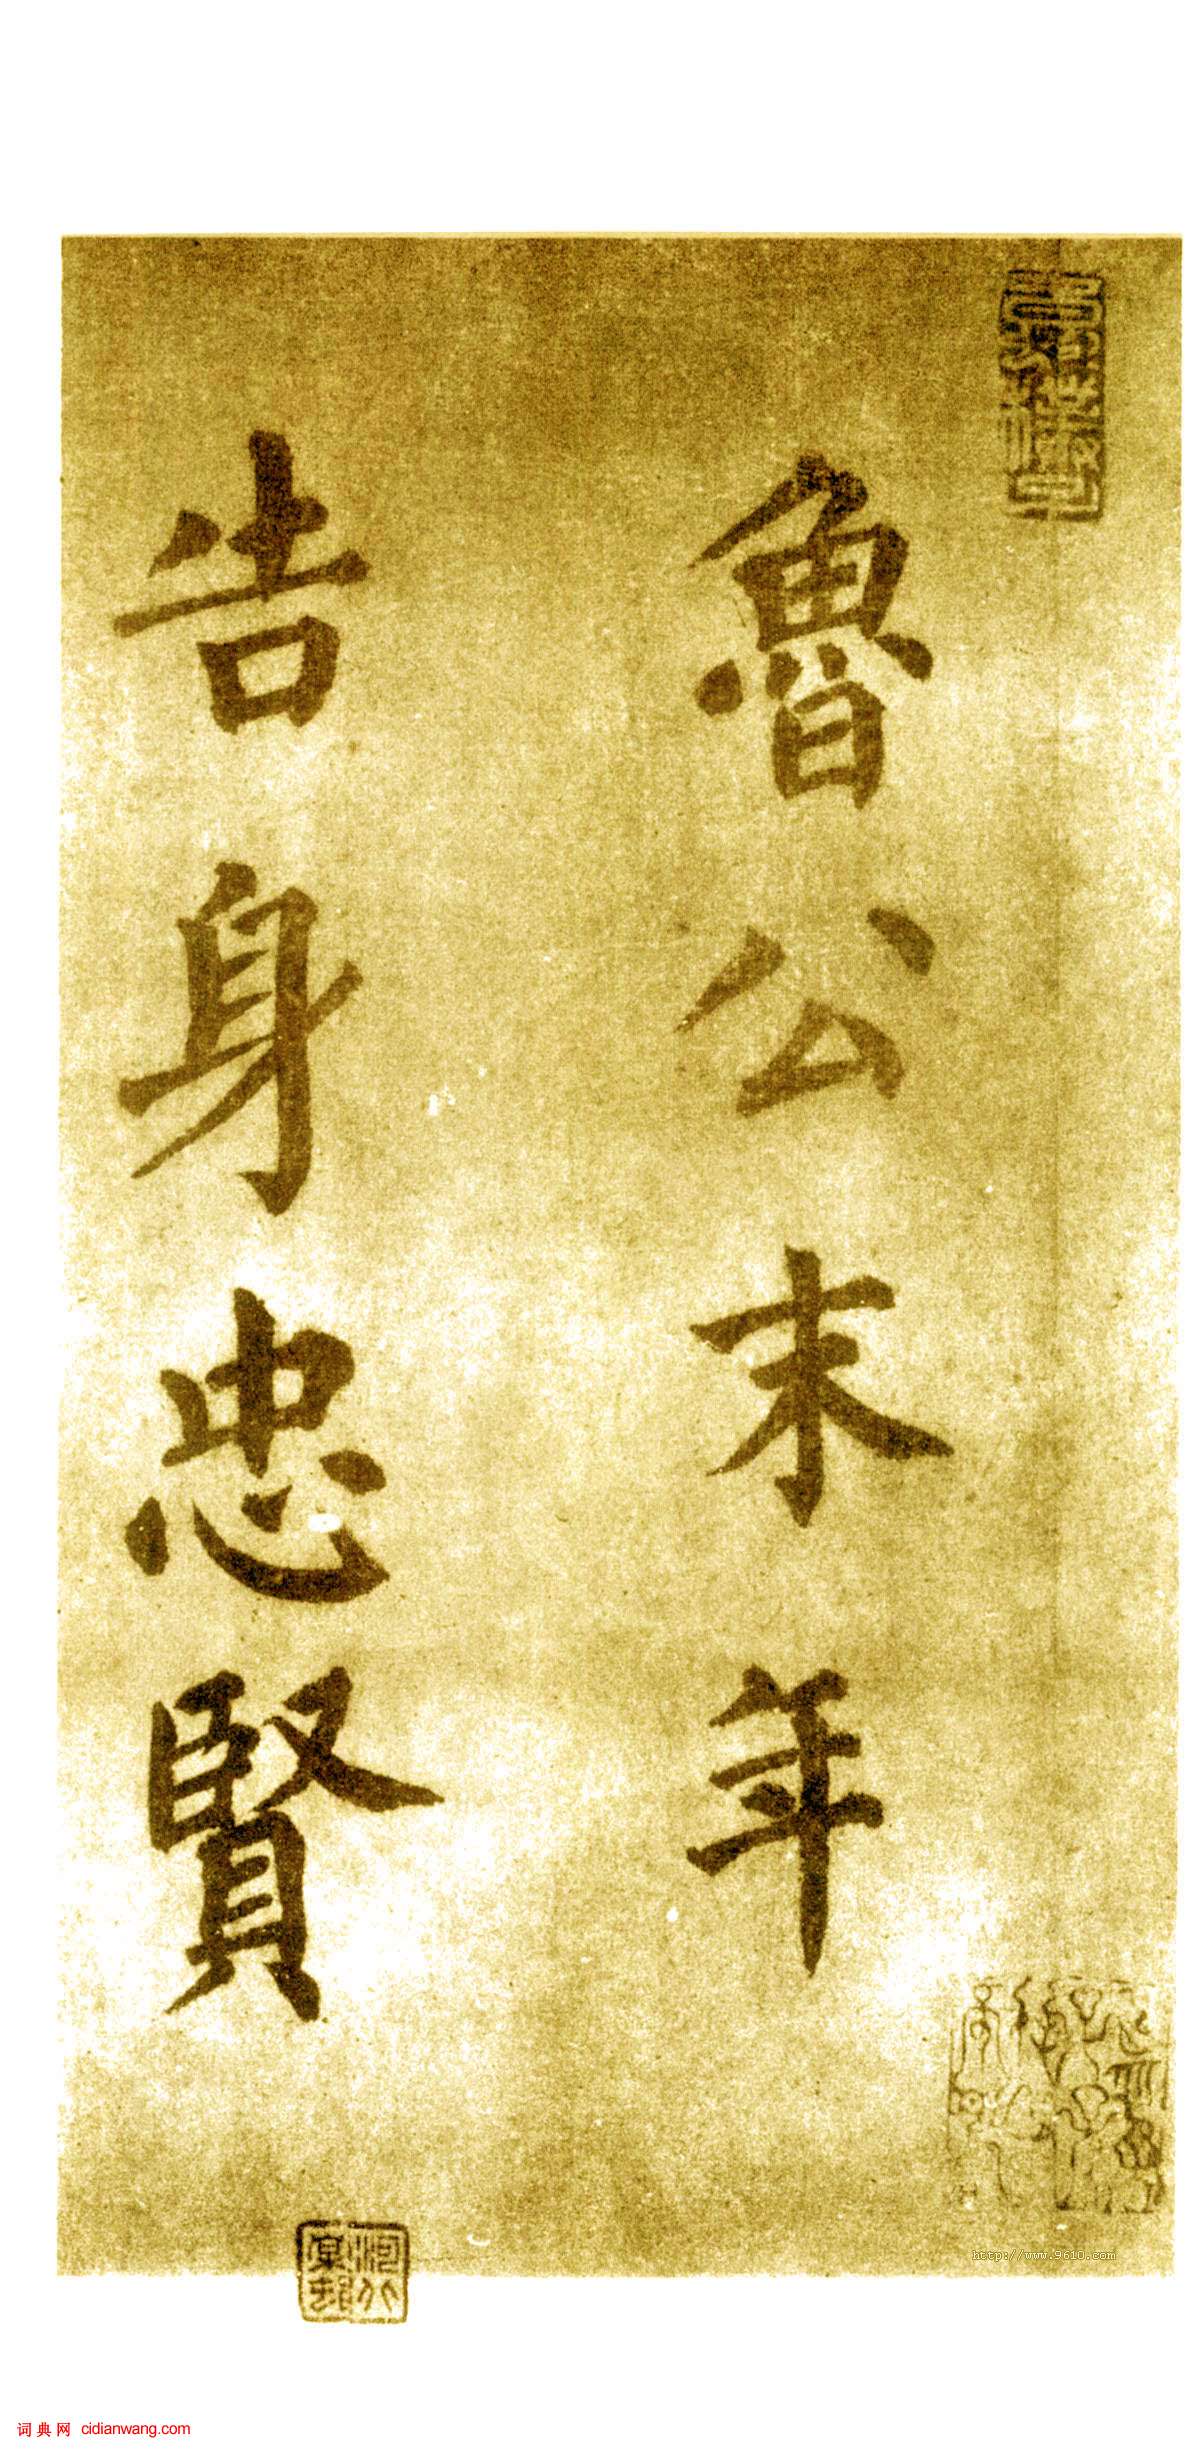 魯公末年
告身忠賢
http://www.9610.com
词典网 cidianwang.com